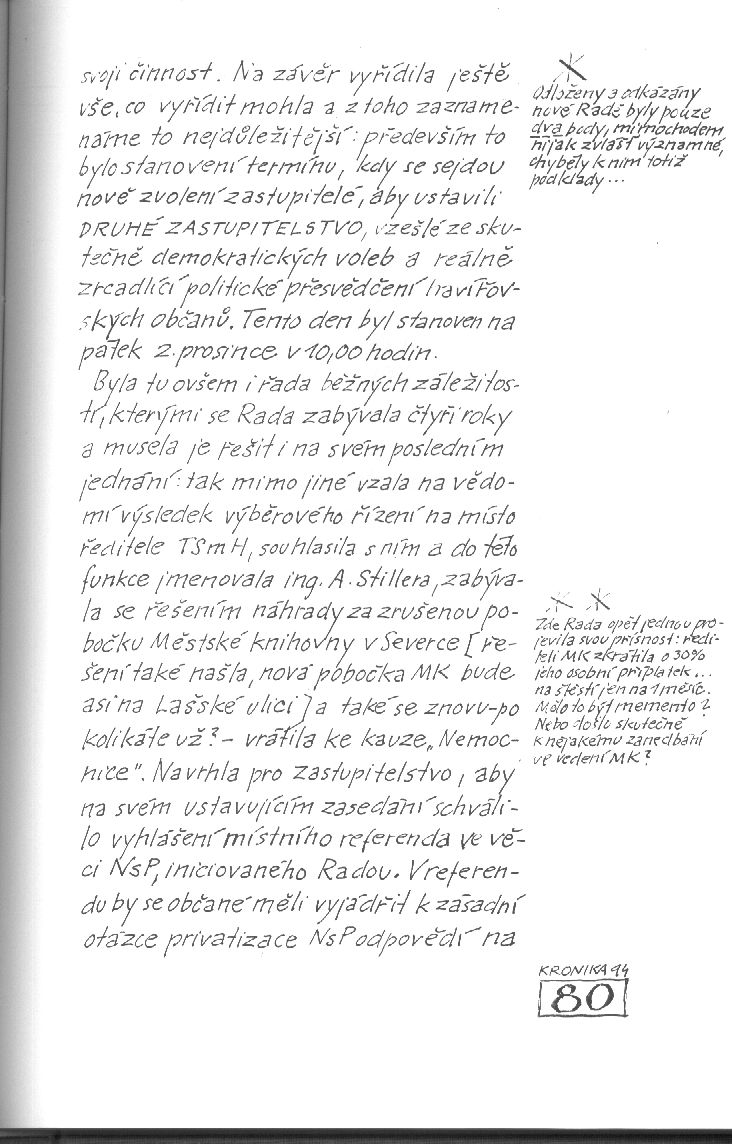 svoji činnost. Na závěr vyřídila ještě
vše, co vyřídit mohla a z toho zazname-
náme to nejdůležitější: především to
bylo stanovení termínu, kdy se sejdou
nově zvolení zastupitelé, aby ustavili
DRUHÉ ZASTUPITELSTVO, vzešlé ze sku-
tečně demokratických voleb a reálně
zrcadlící politické přesvědčení havířov-
ských občanů. Tento den byl stanoven na
pátek 2. prosince v 10,00 hodin.
Byla tu ovšem i řada běžných záležitos-
tí, kterými se Rada zabývala čtyři roky
a musela je řešit i na svém posledním
jednání: tak mimo jiné vzala na vědo-
mí výsledek výběrového řízení na místo
ředitele TSmH, souhlasila s ním a do této
funkce jmenovala ing. A. Stillera, zabýva-
la se řešením náhrady za zrušenou po-
bočku Městské knihovny v Severce [ře-
šení také našla, nová pobočka MK bude
asi na Lašské ulici] a také se znovu-po
kolikáte už? - vrátila ke kauze „Nemoc-
nice". Navrhla pro zastupitelstvo, aby
na svém ustavujícím zasedání schváli-
lo vyhlášení místního referenda ve vě-
ci NsP, iniciovaného Radou. V referen-
du by se občané měli vyjádřit k zásadní
otázce privatizace NsP odpovědí na
Odloženy a odkázány
nové Radě byly pouze
dva body, mimochodem
nijak zvlášť významné,
chyběly k nim totiž
podklady...
Zde Rada opět jednou pro-
jevila svou přísnost: ředi-
teli MK zkrátila o 30%
jeho osobní příplatek...
na štěstí jen na 1 měsíc.
Mělo to být memento?
Nebo došlo skutečně
k nějakému zanedbání
ve vedení MK?
KRONIKA 94
80